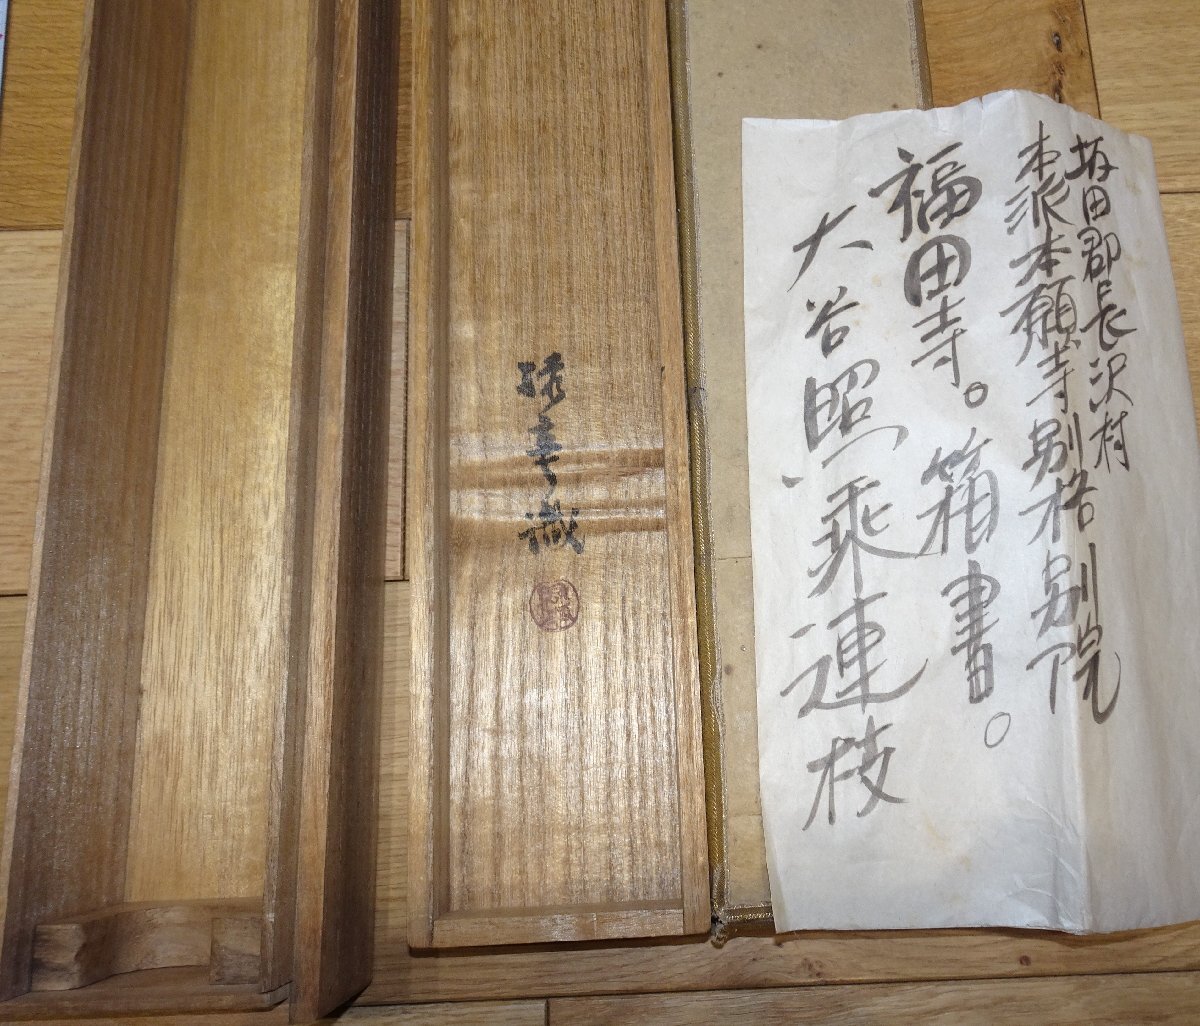 坂田郡長沢村
本派本願寺別格別院
福田寺。箱書。
大谷照乘連枝
識